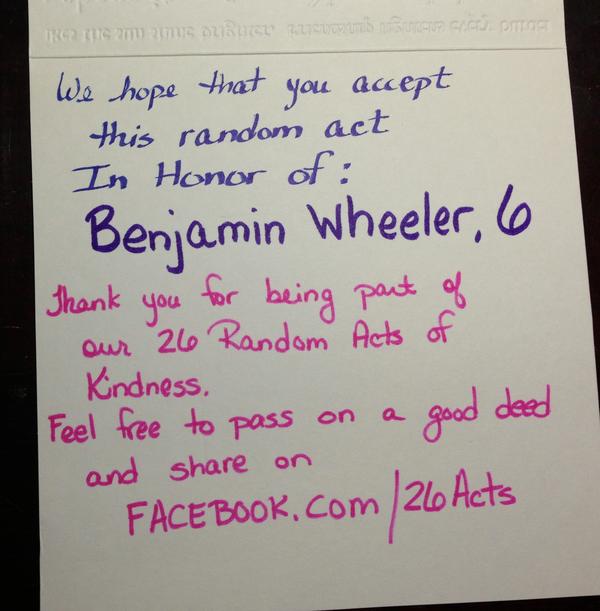 We hope that you accept
this random act
In Honor of:
Benjamin Wheeler, 6
Thank you for being part of
our 26 Random Acts of
Kindness.
Feel free to pass on a good deed
and share on
FACEBOOK.com/26Acts